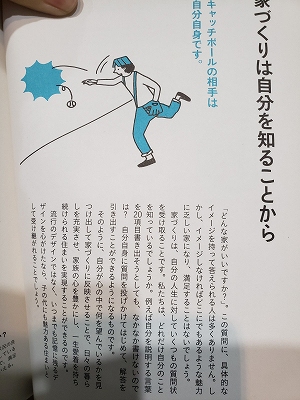 家づくりは自分を知ることから
キャッチボールの相手は
自分自身です。
「どんな家がいいですか？」。この質問に、具体的な
イメージを持って答えられる人は多くありません。し
かし、イメージしなければどこにでもあるような魅力
に乏しい家になり、満足することはないでしょう。
家づくりは、自分の人生に対していくつもの質問状
を受け取ることです。私たちは、どれだけ自分のこと
を知っているでしょうか。例えば自分を説明する言葉
を20項目書き出そうとしても、なかなか書けないので
は？ 自分自身に質問を投げかけてはじめて、解答を
引き出すことができるようになるものです。
そのように、自分が心の中で何を望んでいるかを見
つけ出して家づくりに反映させることで、日々の暮ら
しを充実させ、家族の心を豊かにし、一生愛着を持ち
続けられる住まいを実現することができるのです。
流行のデザインではなく、いつまでも記憶に残るデ
ザインを心がけたなら、子の代にも魅力ある住まいと
して受け継がれることでしょう。